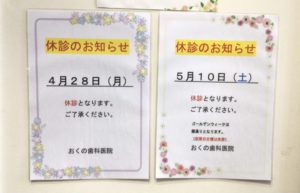 休診のお知らせ
4月28日（月）
休診となります。
ご了承ください。
おくの歯科医院
休診のお知らせ
5月10日（土）
休診となります。
ご了承ください。
ゴールデンウィークは
暦通りとなります。
おくの歯科医院